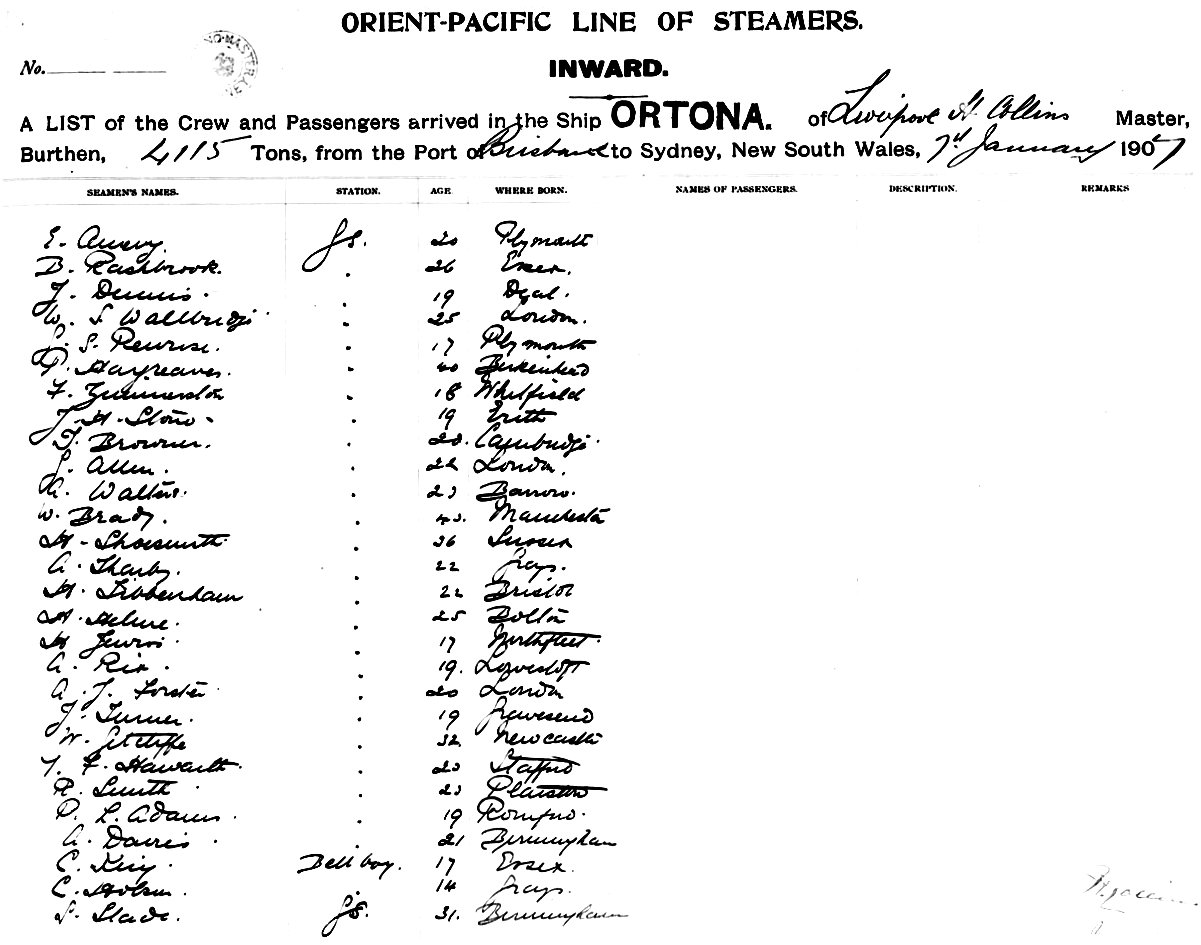 ORIENT-PACIFIC LINE OF STEAMERS.
No.
INWARD.
A LIST of the Crew and Passengers arrived in the Ship ORTONA. of Liverpool H. Collins Master,
Burthen, 4115 Tons, from the Port of Brisbane to Sydney, New South Wales, 7th January 1907
SEAMEN'S NAMES. STATION. AGE WHERE BORN. NAMES OF PASSENGERS. DESCRIPTION. REMARKS
E. 20 Plymouth
B. Rashbrook. 26 Essex.
J. Dennis. 19 Deal.
W. S. Wallbridge 25 London.
S. Penrose. 17 Plymouth
Hargreaves. 40 Birkenhead
F. 18 Whitfield
J. H. Stone 19 Erith
Browner. 20. Cambridge.
Allen. 22 London.
A. Walters. 23 Barrow.
W. Brady. Manchester
H. Shoesmith 36 Sussex
A. Tharby. 22 Grays.
H. Tibbenham 22 Bristol
H. 25 Bolton
H. Lewis 17 Northfleet
A. Rix. 19. Lowestoft
A. J. Forster 20 London
J. Turner. 19 Gravesend
W. 32 Newcastle
F. Haworth. 23 Stafford
R. Smith 23 Plaistow
P. L. Adams. 19 Romford.
A. Davies. 21 Birmingham
C. King. Bell boy. 17 Essex.
C. Holson. 14 Grays.
S. Slade. 31. Birmingham